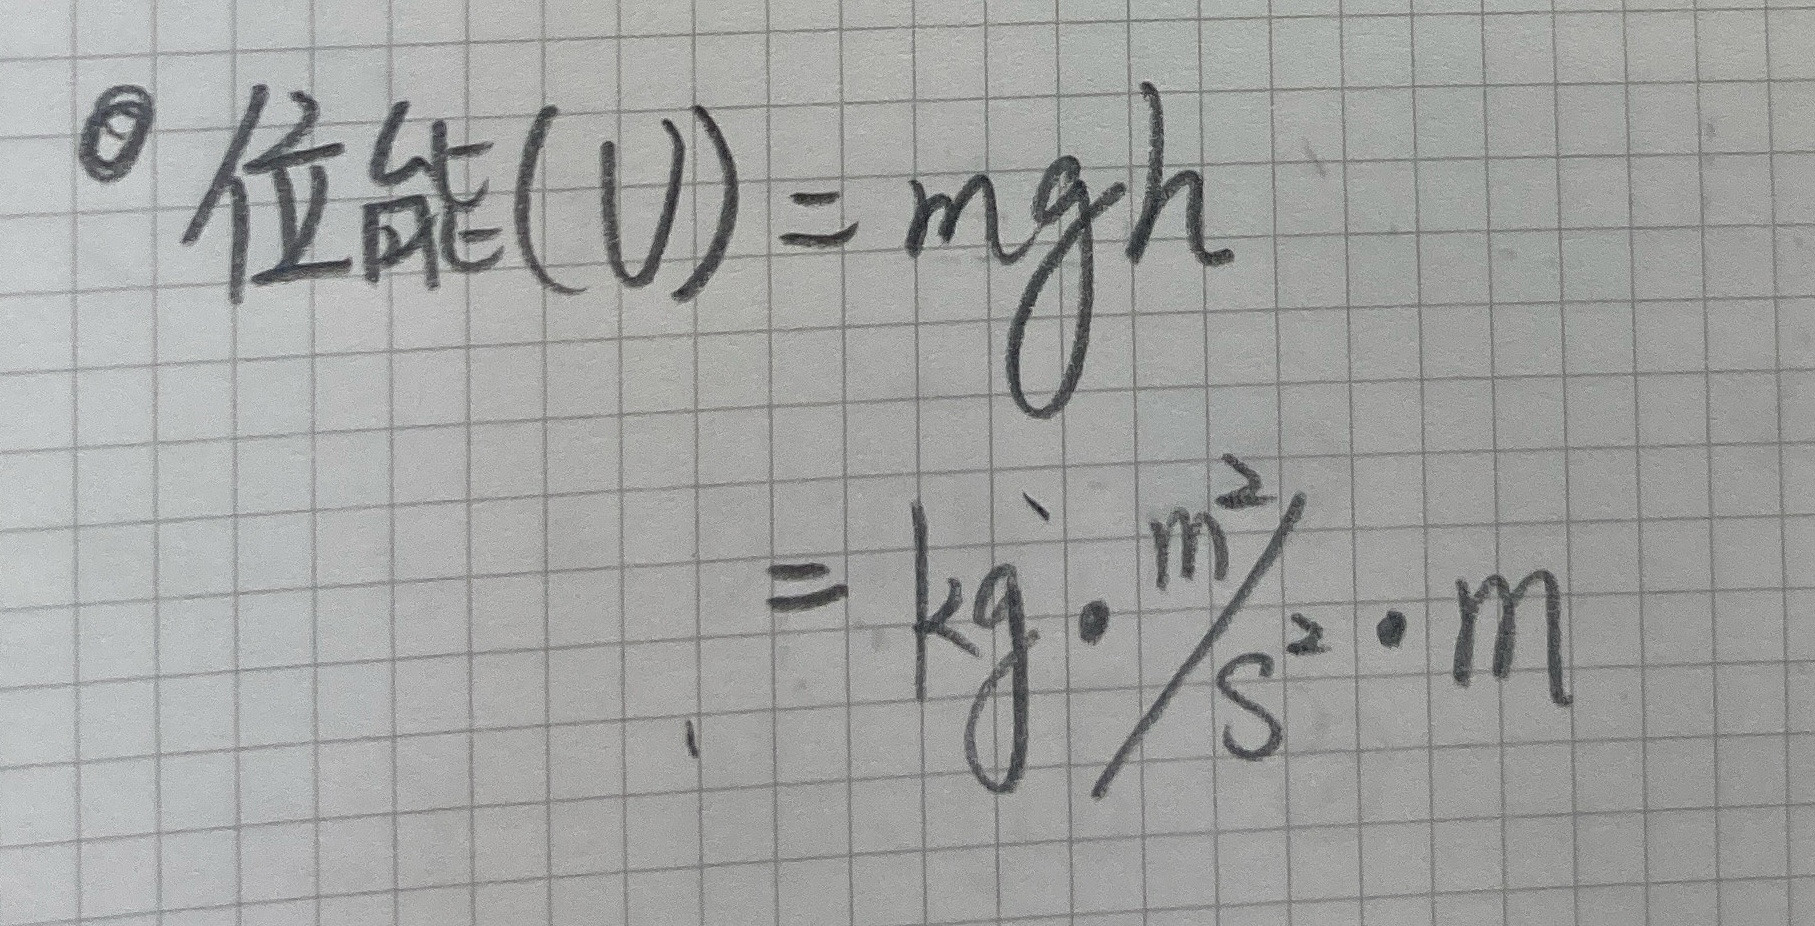 ◎位能(U)=mgh
=kg·m²/s²·m